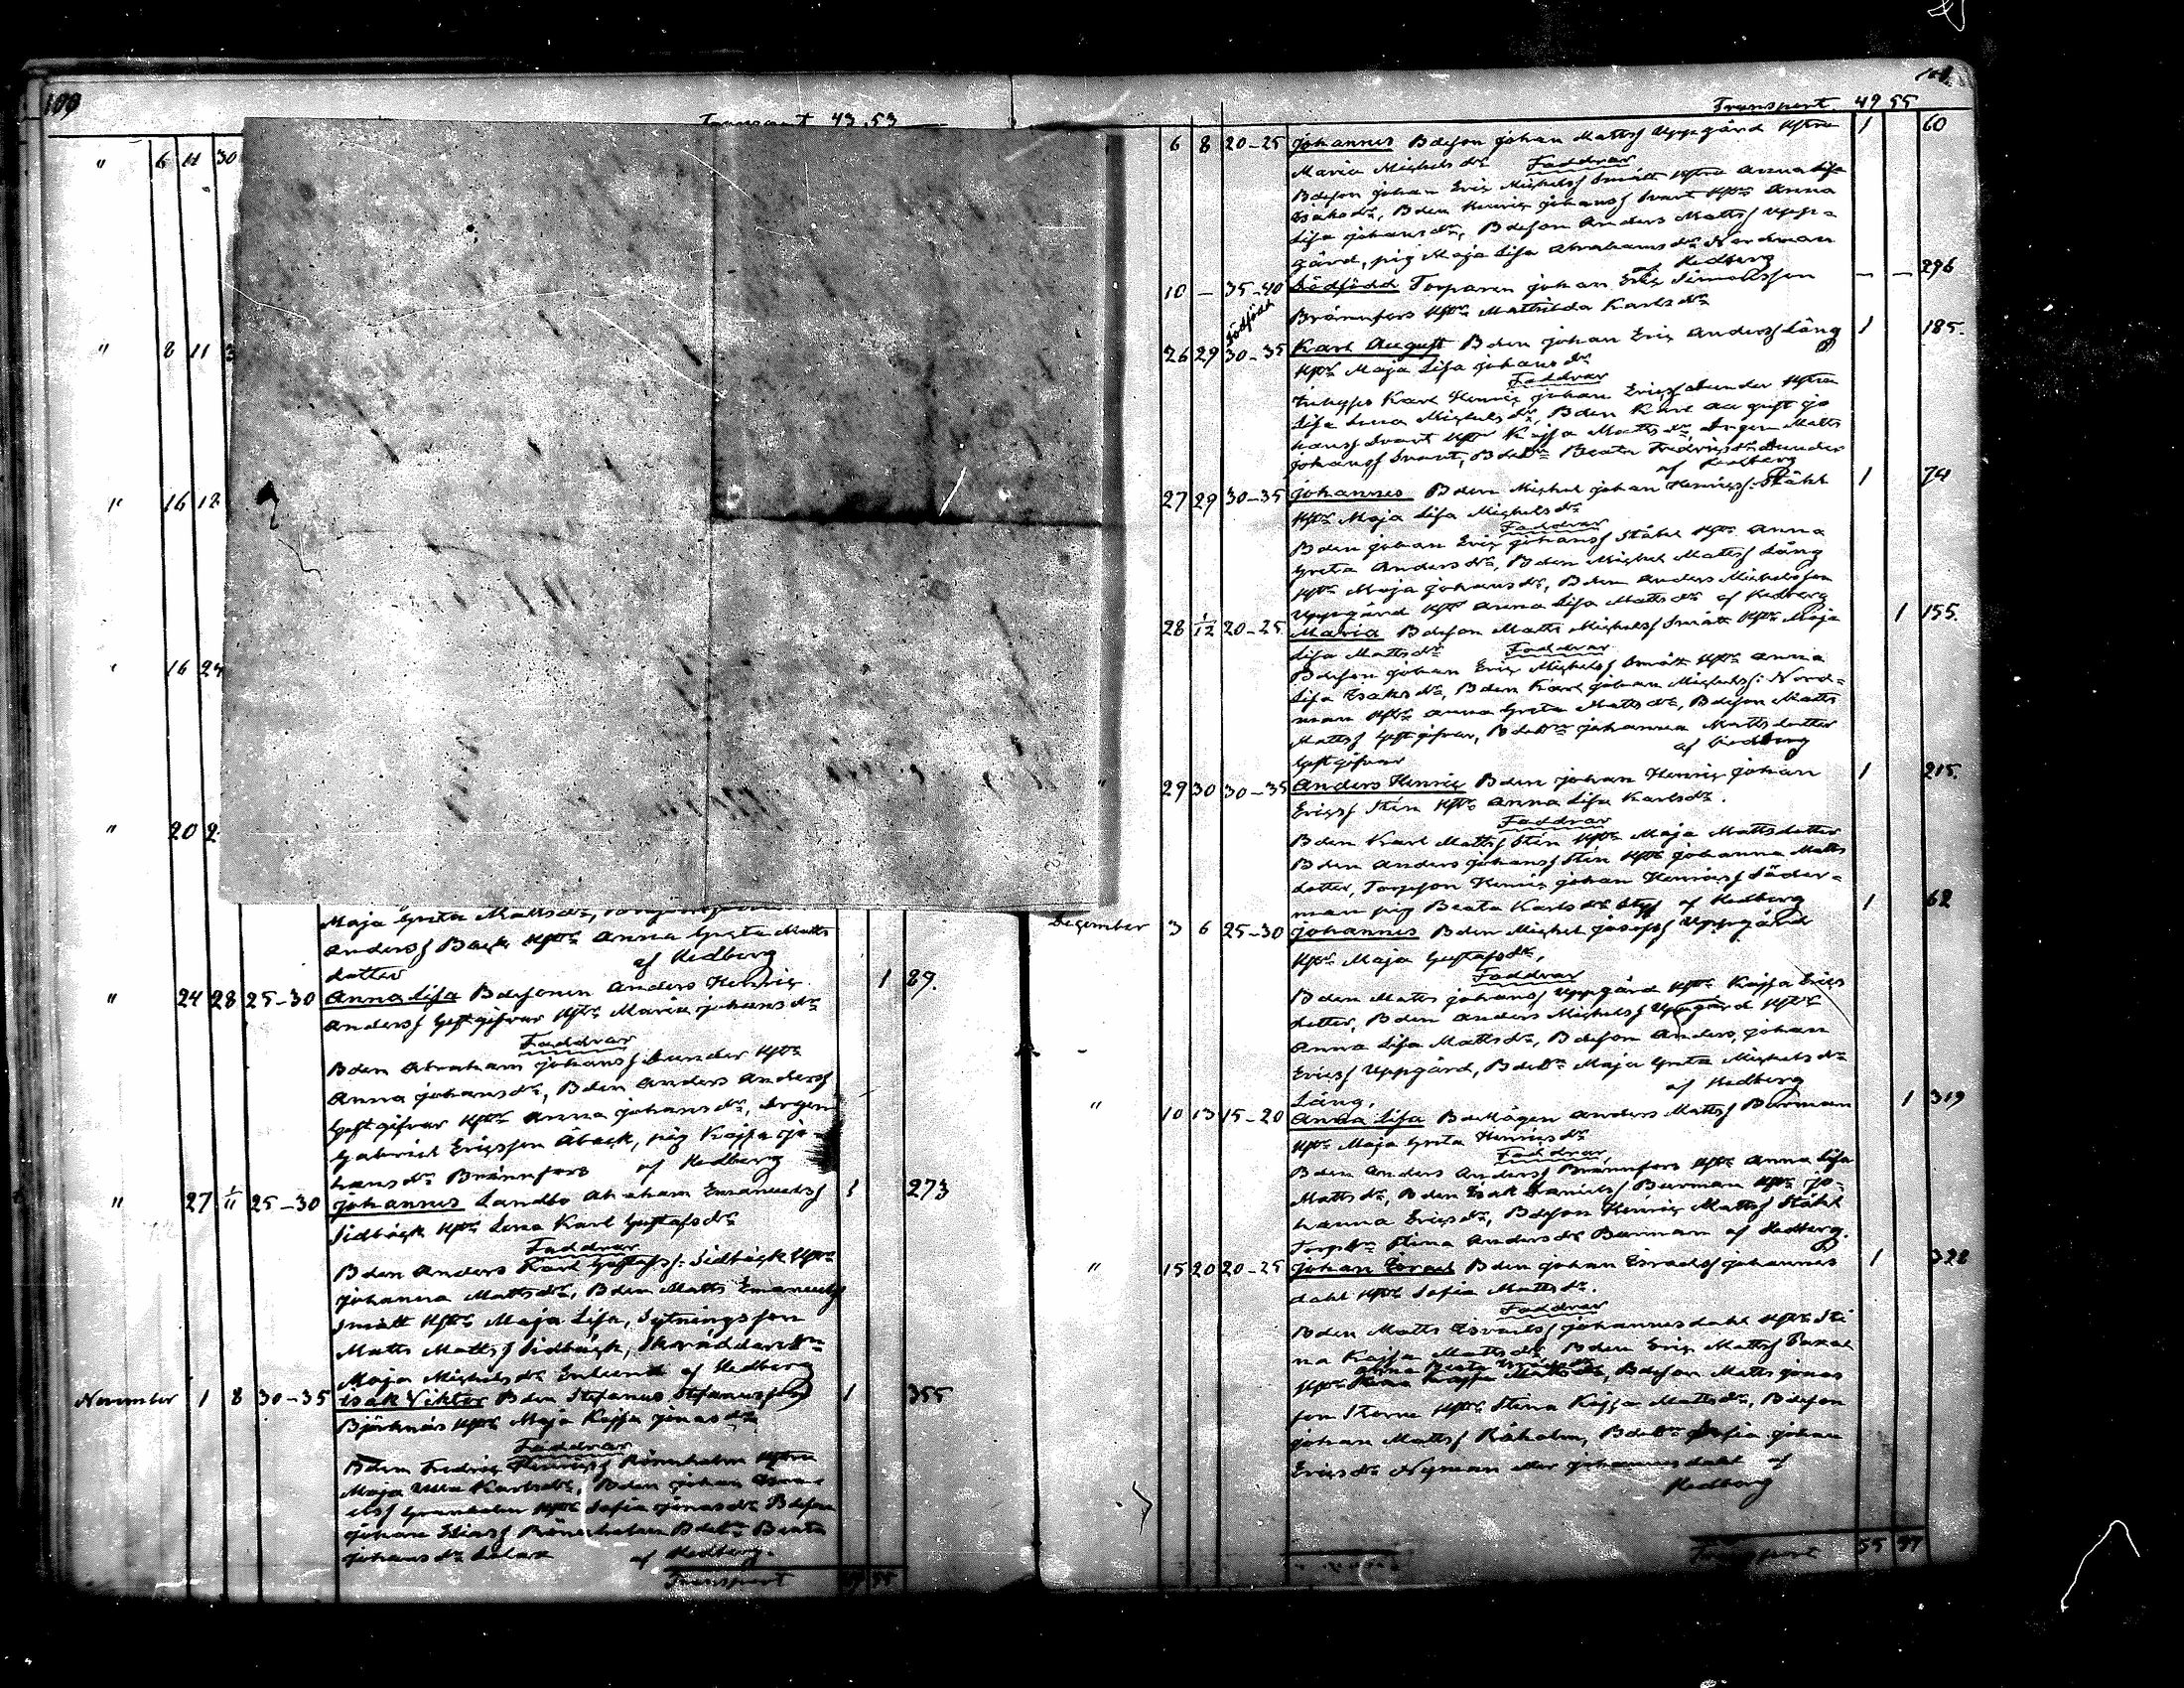 100
Transport 43.53
" 6 11 30
" 8 11 3
" 16 18
" 16 24
" 20 2
Maja Greta Mattsdr,
Anderss Back Hstr Anna Greta Matts
dotter af Hedberg
" 24 28 25-30 Anna Lisa Bdesonen Anders Henric 1 89.
Anderss Gestgifvar Hstr Maria Johansdr
Faddrar
Bden Abraham Johanss Sunder Hstr
Anna Johansdr, Bden Anders Anderss
Gestgifvar Hstr Anna Johansdr, Drgen
Gabriel Ericsson Åback, pig Kajsa Jo-
hansdr Brännfors af Hedberg
" 27 1/11 25-30 Johannes Landbo Abraham Emanuelss 1 273
Sidbäck Hstr Lena Karl Gustafsdr
Faddrar
Bden Anders Karl Gustafss: Sidbäck Hstr
Johanna Mattsdr, Bden Matts Emanuelss
Smått Hstr Maja Lisa, Sytningsson
Matts Mattss Sidbäck, Skräddare
Maja Michelsdr Enlund af Hedberg
November 1 8 30-35 Isak Viktor Bden Stefanus Stefanusson 1 355
Björknäs Hstr Maja Kajsa Jonasdr
Faddrar
Bden Fredric Henricss Rönnholm Hstru
Maja Ulla Karlsdr, Bden Johan
Hstr Sofia Jonasdr Bdeson
Johan Bdedr Beata
Johansdr af Hedberg.
Transport 49 55
Transport 49 55
6 8 20-25 Johannes Bdeson Johan Mattss Uppgård Hstru 1 60
Maria Michelsdr Faddrar
Bdeson Johan Eric Michelss Smått Hstru Anna Lisa
Isaksdr, Bden Henric Johanss Svart Hstr Anna
Lisa Johansdr, Bdeson Anders Mattss Upp-
gård, pig Maja Lisa Abrahamsdr Nordman
af Hedberg
10 - 35-40 Dödfödd Torparen Johan Eric Simonsson - - 296
dödfödd
Brännfors Hstr Mathilda Karlsdr
26 29 30-35 Karl August Bden Johan Eric Anderss Lång 1 185.
Hstr Maja Lisa Johansdr
Faddrar
Karl Henric Johan Ericss Sunder Hstru
Lisa Lena Michelsdr, Bden Karl August Jo
hanss Svart Hstr Kajsa Mattsdr, Drgen Matts
Johanss Svart, Bdedr Beata Fredricsdr Sunder
af Hedberg
27 29 30-35 Johannes Bden Michel Johan Henricss: Ståhl 1 74
Hstr Maja Lisa Michelsdr
Faddrar
Bden Johan Eric Johanss Ståhl Hstr Anna
Greta Andersdr, Bden Michel Mattss Lång
Hstr Maja Johansdr, Bden Anders Michelsson
Uppgård Hstr Anna Lisa Mattsdr af Hedberg
28 1/12 20-25 Maria Bdeson Matts Michelss Smått Hstr Maja 1 155.
Lisa Mattsdr Faddrar
Bdeson Johan Eric Michelss Smått Hstr Anna
Lisa Isaksdr, Bden Karl Johan Michelss: Nord-
man Hstr Anna Greta Mattsdr, Bdeson Matts
Mattss Gestgifvar, Bdedr Johanna Mattsdotter
Gestgifvar af Hedberg
" 29 30 30-35 Anders Henric Bden Johan Henric Johan 1 215.
Ericss Stén Hstr Anna Lisa Karlsdr.
Faddrar
Bden Karl Mattss Stén Hstr Maja Mattsdotter
Bden Anders Johanss Stén Hstr Johanna Matts
dotter, Torpson Henric Johan Henricss Söder-
man pig Beata Karlsdr af Hedberg
December 3 6 25-30 Johannes Bden Michel Josefss Uppgård 1 62
Hstr Maja Gustafsdr,
Faddrar
Bden Matts Johanss Uppgård Hstr Kajsa Erics
dotter, Bden Anders Michelss Uppgård Hstr
Anna Lisa Mattsdr, Bdeson Anders Johan
Ericss Uppgård, Bdedr Maja Greta Michelsdr
Lång, af Hedberg
" 10 13 15-20 Anna Lisa Bdemågen Anders Mattss Burman 1 319
Hstr Maja Greta Henricsdr
Faddrar,
Bden Anders Anderss Brännfors Hstr Anna Lisa
Mattsdr, Bden Isak Danielss Burman Hstr Jo-
hanna Ericsdr, Bdeson Henric Mattss Ståhl
Torpdr Stina Andersdr Burman af Hedberg.
" 15 20 20-25 Johan Israel Bden Johan Israelss Johannes 1 328
dahl Hstr Sofia Mattsdr.
Faddrar
Bden Matts Israelss Johannesdahl Hstr Sti
na Kajsa Mattsdr, Bden Eric Mattss
Anna Beata
Hstr Mattsdr, Bdeson Matts Jonas
son Storm Hstr Stina Kajsa Mattsdr, Bdeson
Johan Mattss Råholm, Bdedr Sofia Johan
Ericsdr Nyman Johannesdahl af
Hedberg
Transport 55 57